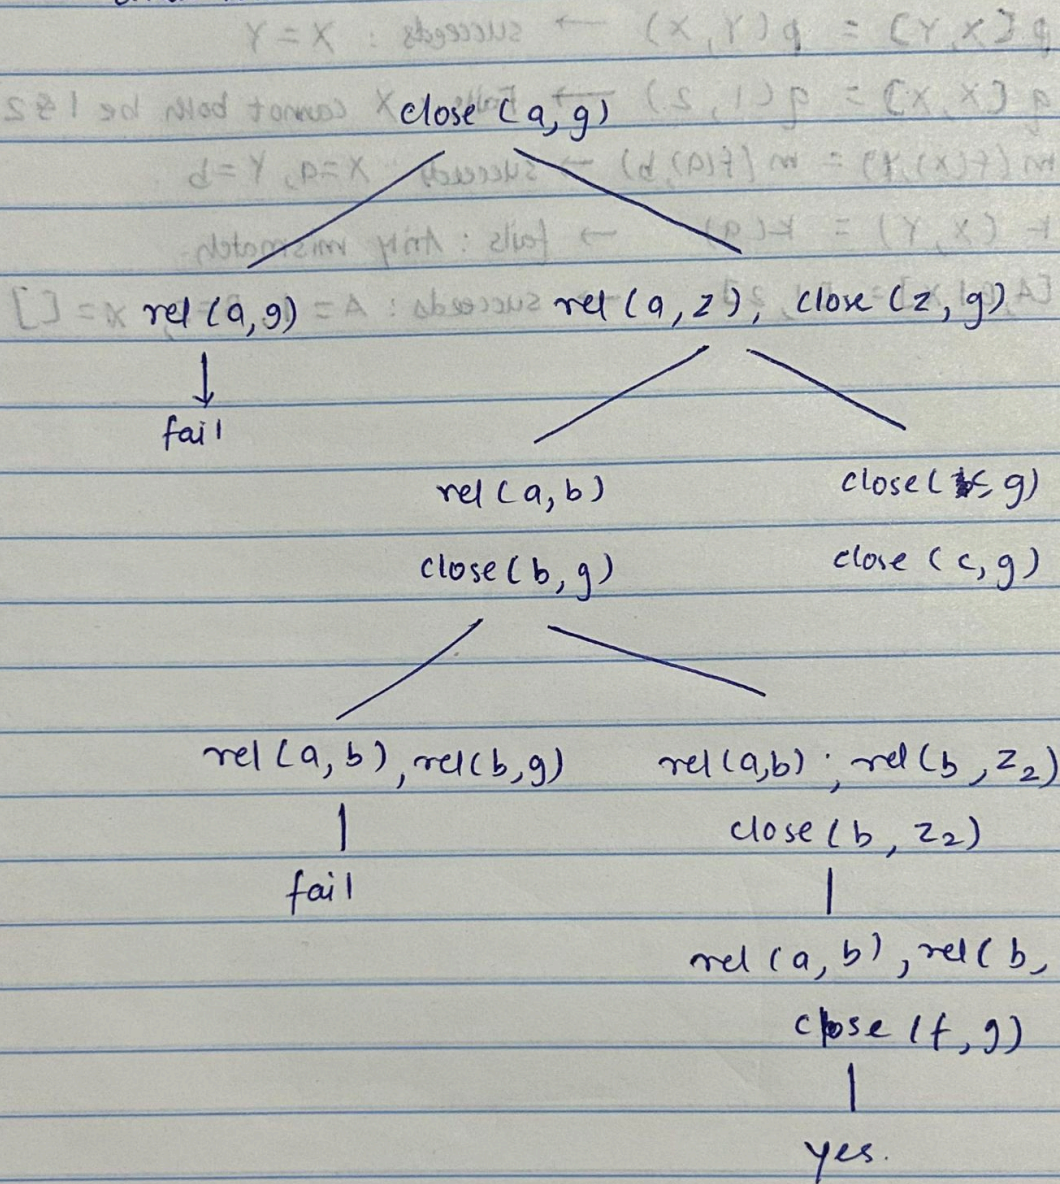 close (a, g)
rel (a, g) rel (a, z), close (z, g)
↓
fail
rel (a, b) close( c, g)
close (b, g) close (c, g)
rel (a, b), rel (b, g) rel (a,b), rel (b, z2)
close (b, z2)
fail
rel (a, b), rel (b,
close (f, g)
yes.